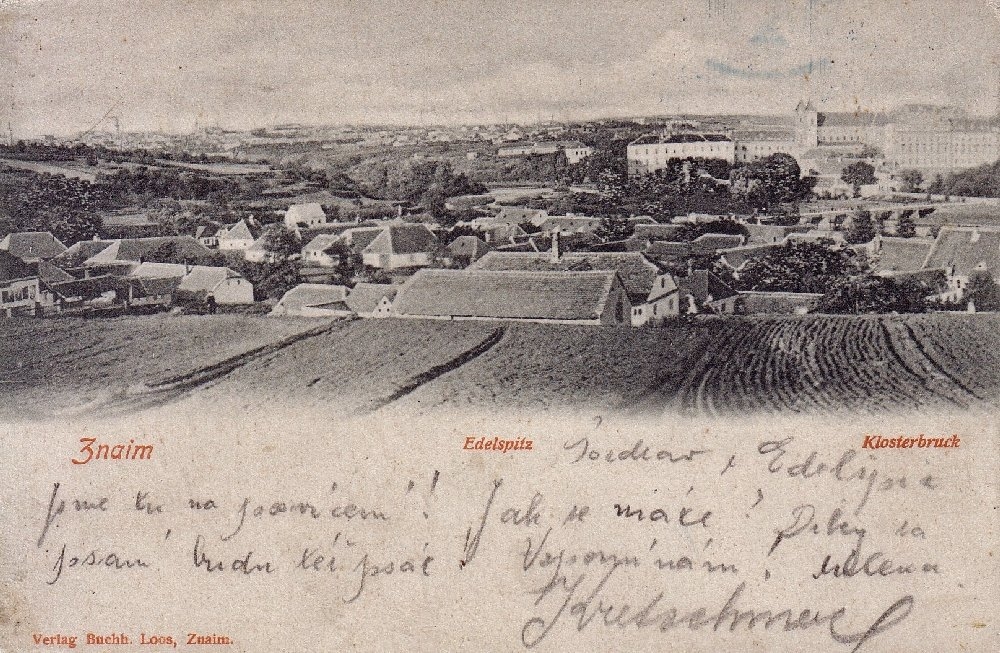 Znaim Edelspitz Klosterbruck
Pozdrav z Edelspic
Jsme tu na posvícení! Jak se máte? Díky za
psaní, budu též psát! Vzpomínám! Milena
Kretschmer
Verlag Buchh. Loos, Znaim.